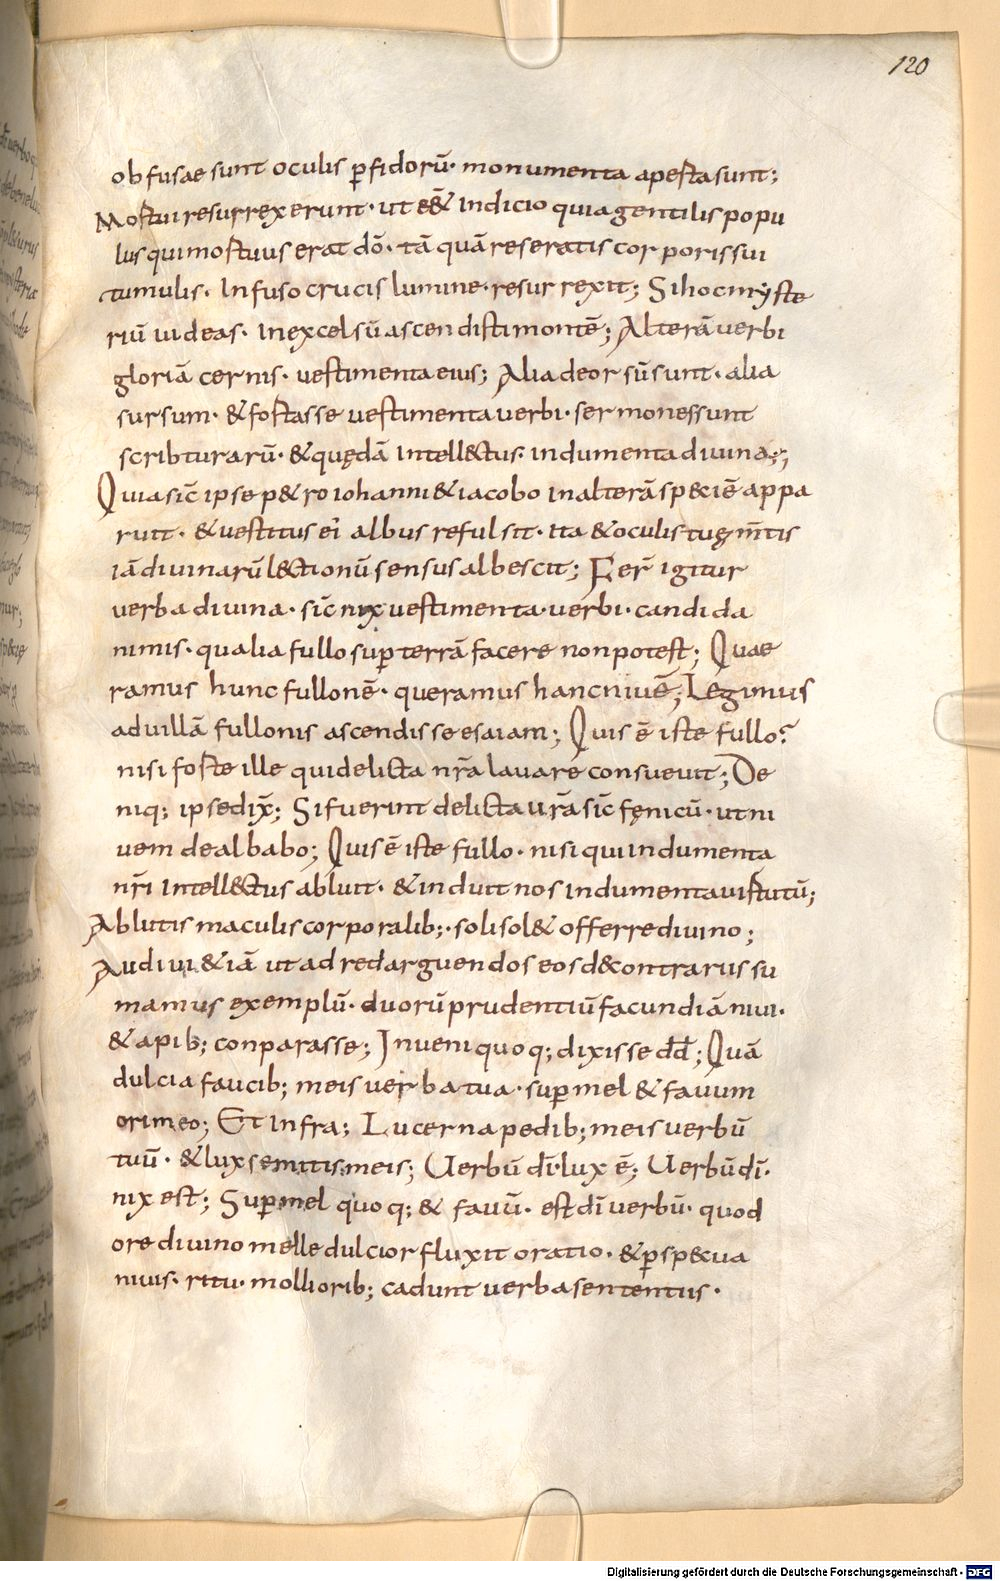 120
obfusae sunt oculis ꝑfidorū· monumenta aperta sunt;
Mortui resurrexerunt· ut eēt indicio quia gentilis popu
lus qui mortuus erat dō· tā quā reseratis corporis sui
tumulis· Infuso crucis lumine· resurrexit; Si hoc mẏste
riū uideas· in excelsū ascendisti montē; Alterā uerbi
gloriā cernis· uestimenta eius; Alia deorsū sunt· alia
sursum· & fortasse uestimenta uerbi· sermones sunt
scribturarū· & quędā intell&tus· indumenta diuina;
Quia sic̄ ipse p&ro iohanni & iacobo in alterā sp&iē appa
ruit· & uestitus ei᷒ albus refulsit· ita & oculis tuę m̄tis
iā diuinarū l&tionū sensus albescit; Fer̄ igitur
uerba diuina· sic̄ nix uestimenta· uerbi· candida
nimis· qualia fullo suꝑ terrā facere non potest; Quae
ramus hunc fullonē· queramus hanc niuē; Legimus
ad uillā fullonis ascendisse esaiam; Quis ē iste fullo?
nisi forte ille qui delicta nr̄a lauare consueuit; De
niq; ipse dix̄; Si fuerint delicta ur̄a sic̄ fęnicū· ut ni
uem dealbabo; Quis ē iste fullo· nisi qui indumenta
nr̄i intell&tus abluit· & induit nos indumenta uirtutū;
Ablutis maculis corporalib;· soli sol& offerre diuino;
Audiui & iā ut ad redarguendos eos d& contrarus su
mamus exemplū· duorū prudentiū facundiā niui·
& apib; conparasse; Inueni quoq; dixisse dd̄; Quā
dulcia faucib; meis uerba tua· suꝑ mel & fauum
ori meo; Et infra; Lucerna pedib; meis uerbū
tuū· & lux semitis meis; Uerbū dī· lux ē; Uerbū dī·
nix est; Suꝑ mel quoq; & fauū· est dī uerbū· quod
ore diuino melle dulcior fluxit oratio· & ꝑsp&ua
niuis· ritu· molliorib; cadunt uerba sententus·
Digitalisierung gefördert durch die Deutsche Forschungsgemeinschaft - DFG